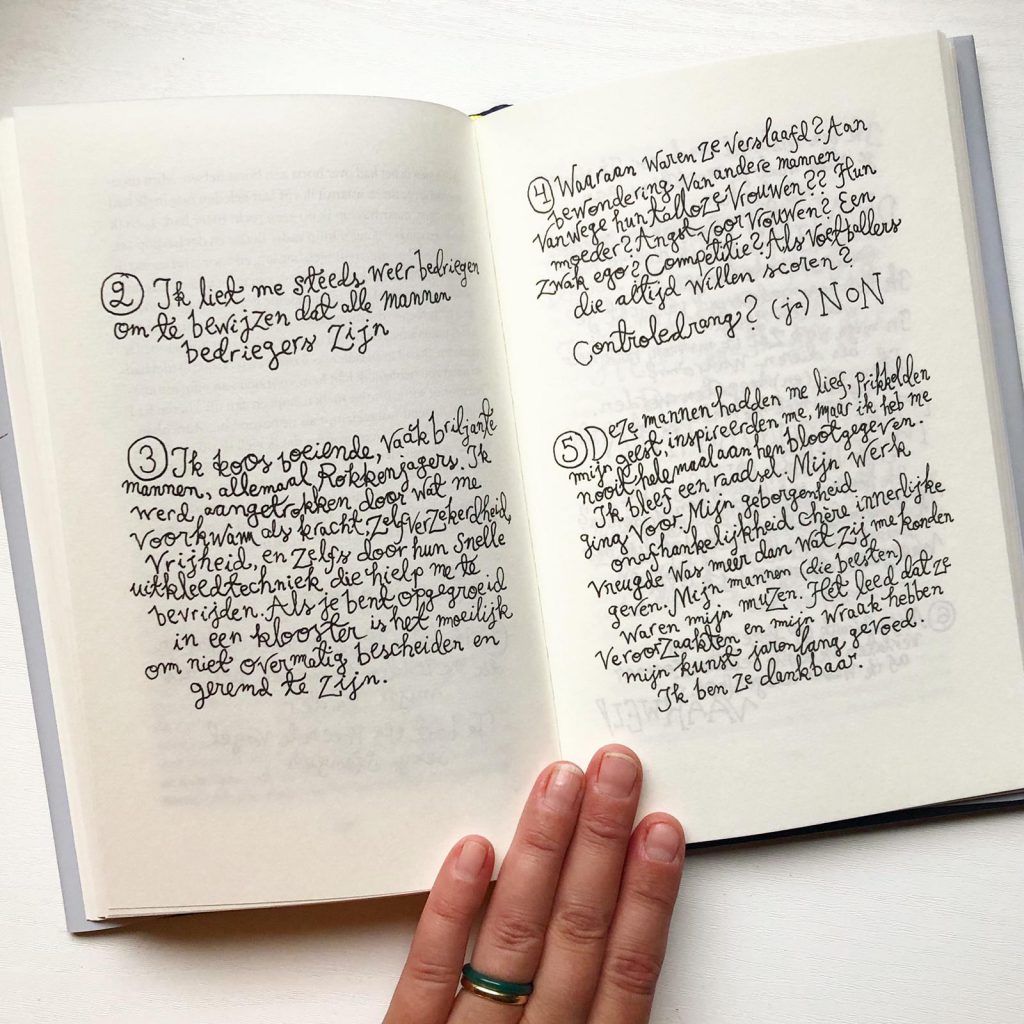 2 Ik liet me steeds weer bedriegen
om te bewijzen dat alle mannen
bedriegers zijn
3 Ik koos boeiende, vaak briljante
mannen, allemaal Rokkenjagers. Ik
werd, aangetrokken door wat me
voorkwam als kracht, zelfverzekerdheid,
vrijheid, en zelfs door hun snelle
uitkleedtechniek die hielp me te
bevrijden. Als je bent opgegroeid
in een klooster is het moeilijk
om niet overmatig bescheiden en
geremd te zijn.
4 Waaraan waren ze verslaafd? Aan
bewondering van andere mannen
vanwege hun talloze vrouwen?? Hun
moeder? Angst voor vrouwen? Een
zwak ego? Competitie? Als voetballers
die altijd willen scoren?
Controledrang? (ja) NON
5 Deze mannen hadden me lief, prikkelden
mijn geest, inspireerden me, maar ik heb me
nooit helemaal aan hen blootgegeven.
Ik bleef een raadsel. Mijn werk
ging voor. Mijn geborgenheid
onafhankelijkheid chère innerlijke
vreugde was meer dan wat zij me konden
geven. Mijn mannen (die beesten)
waren mijn muzen. Het leed dat ze
veroorzaakten en mijn wraak hebben
mijn kunst jarenlang gevoed.
Ik ben ze dankbaar.